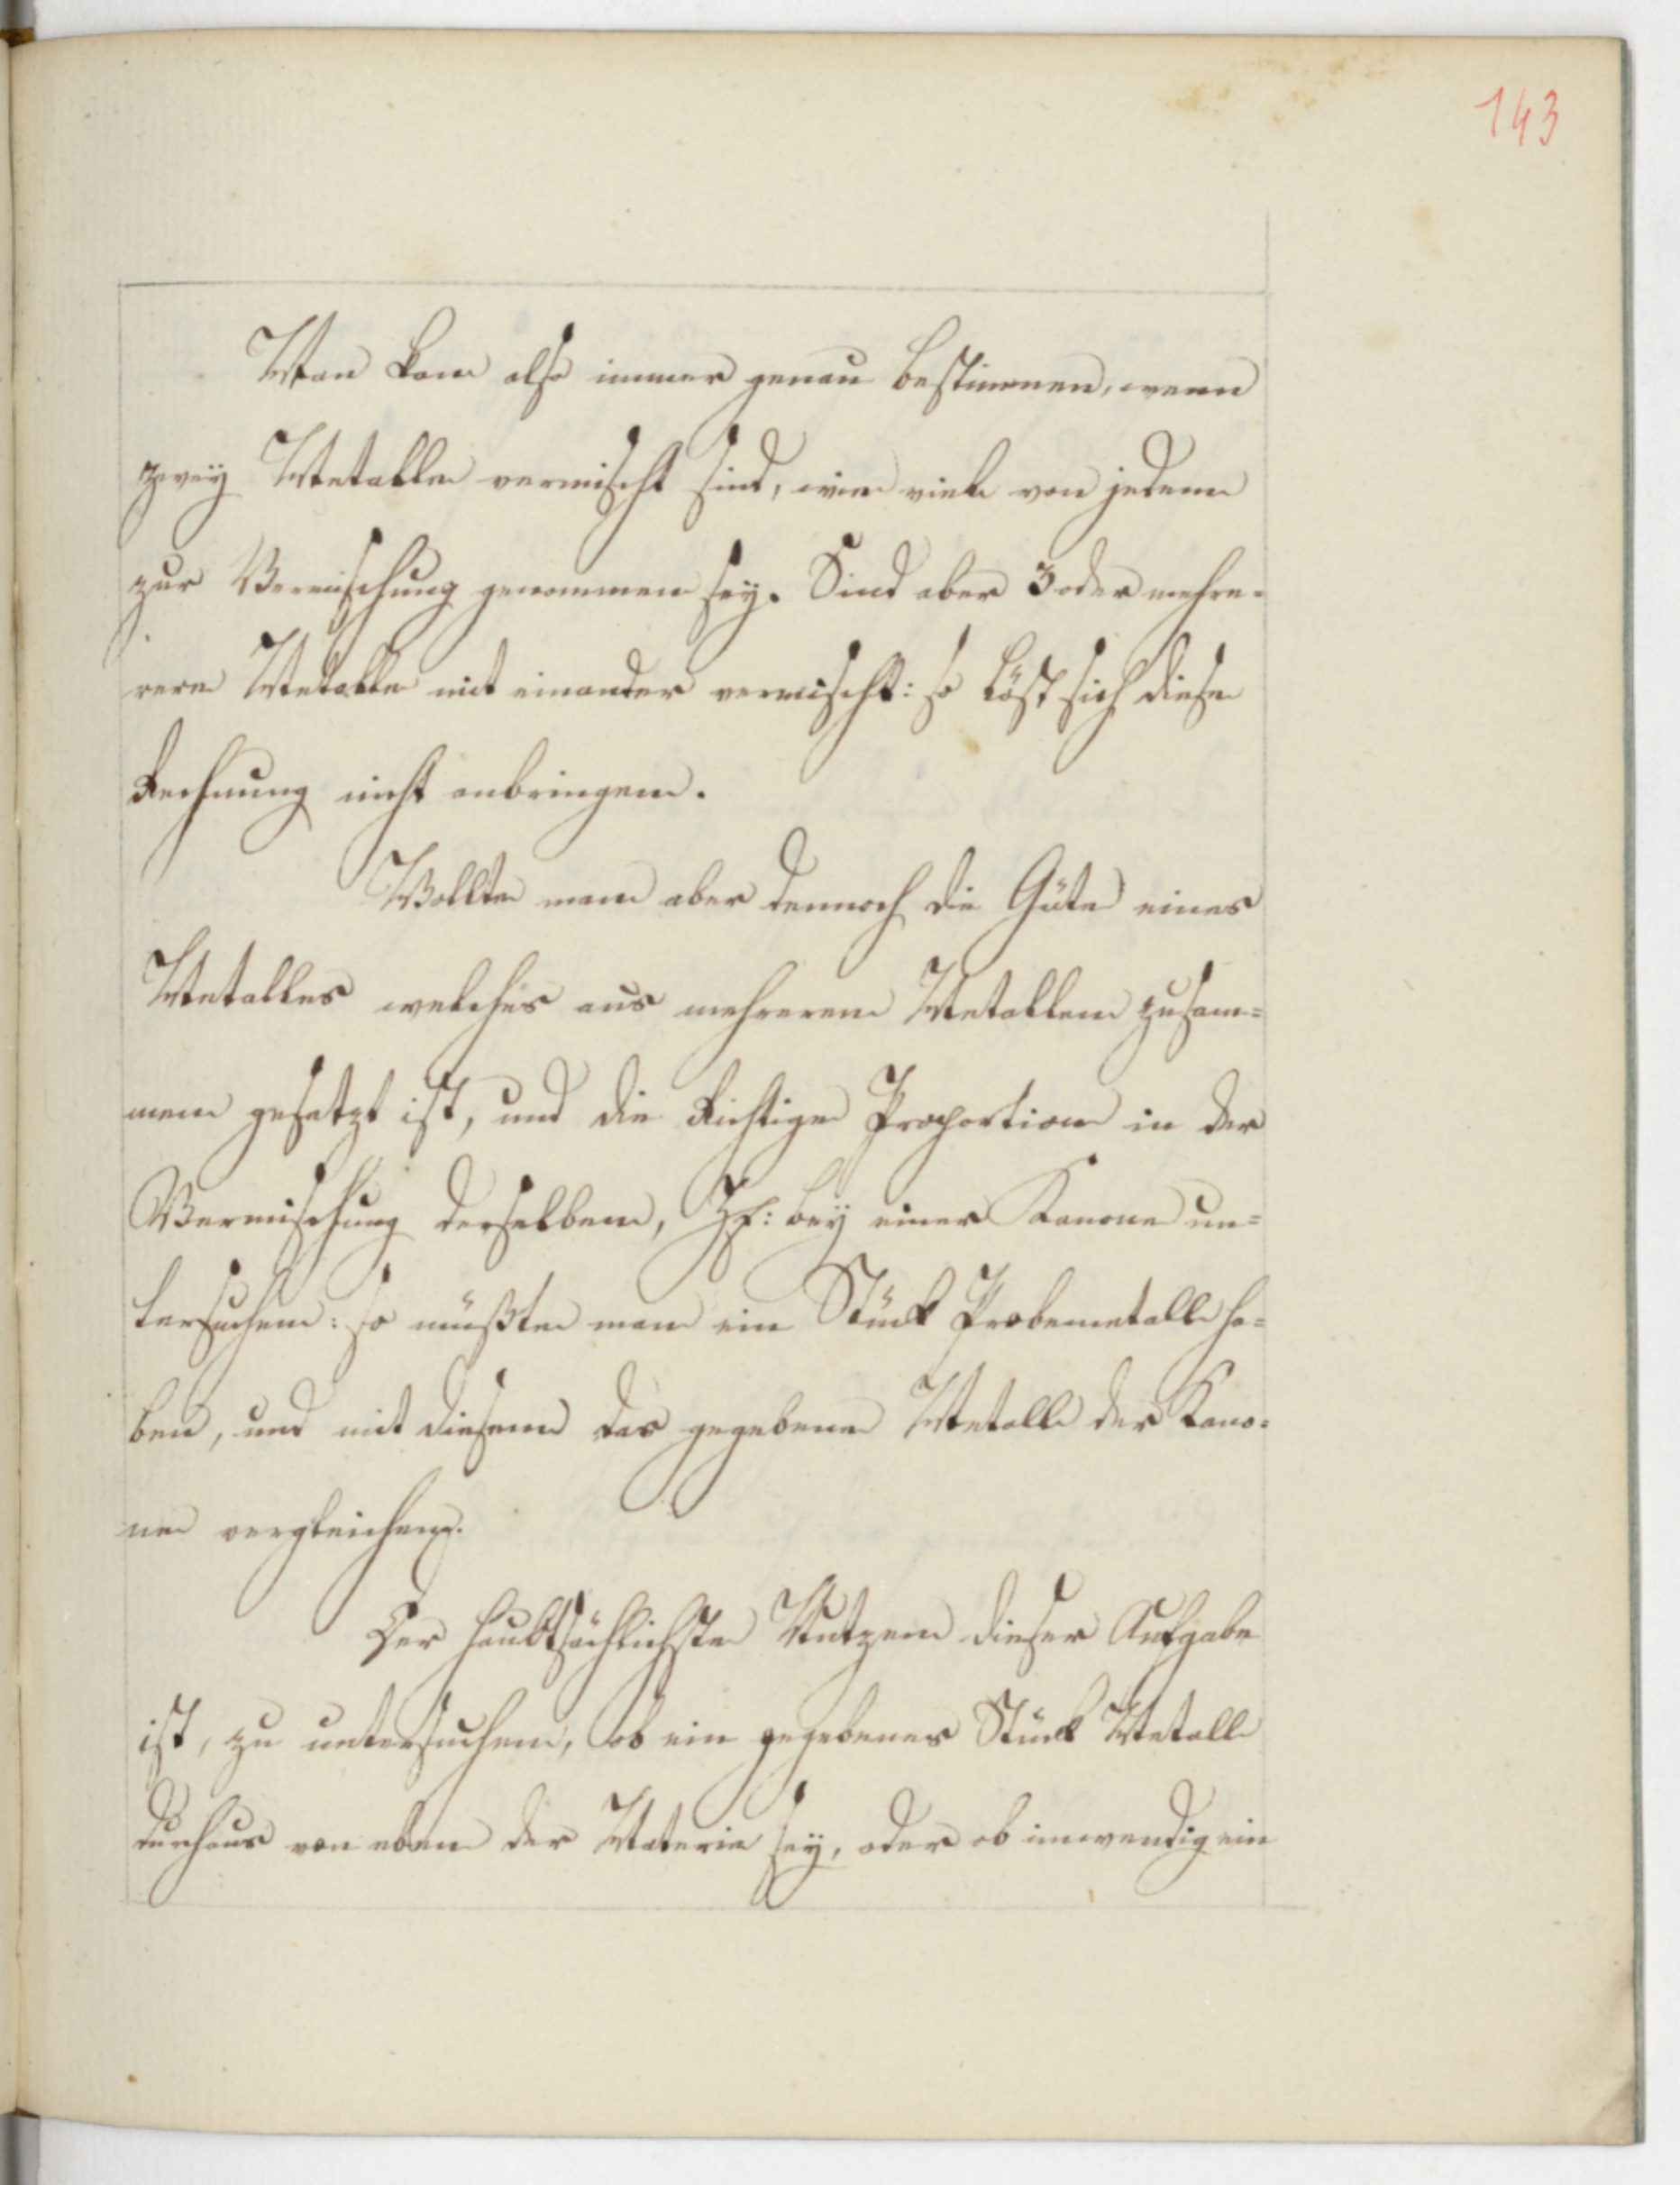 143
Man kan also immer genau bestimmen, wenn
zwey Metalle vermischt sind, wie viele von jedem
zur Vermischung genommen sey. Sind aber 3 oder mehre-
rere Metalle mit einander vermischt: so läst sich diese
Rechnung nicht anbringen.
Wollte man aber dennoch die Güte eines
Metalles welches aus mehreren Metallen zusam=
men gesetzt ist, und die Richtige Proportion in der
Vermischung derselben, Z: bey einer Kanone un=
tersuchen: so müßte man ein Stück Probemetall ha=
ben, und mit diesem das gegebene Metall der Kano=
ne vergleichen.
Der haubtsächlichste Nutzen dieser Aufgabe
ist, zu untersuchen, ob ein gegebenes Stück Metall
durchaus von eben der Materie sey, oder ob inwendig ein